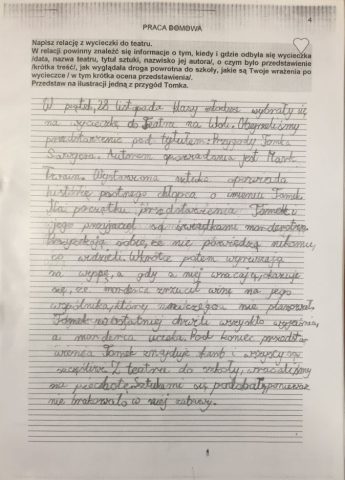 4
PRACA DOMOWA
Napisz relację z wycieczki do teatru.
W relacji powinny znaleźć się informacje o tym, kiedy i gdzie odbyła się wycieczka
/data, nazwa teatru, tytuł sztuki, nazwisko jej autora/, o czym było przedstawienie
/krótka treść/, jak wyglądała droga powrotna do szkoły, jakie są Twoje wrażenia po
wycieczce / w tym krótka ocena przedstawienia/.
Przedstaw na ilustracji jedną z przygód Tomka.
W piątek, 28 listopada klasy młodsze wybrały się
na wycieczkę do Teatru na Woli. Obejrzeliśmy
przedstawienie pod tytułem: Przygody Tomka
Sawyera. Autorem opowiadania jest Mark
Twain. Wystawiona sztuka opowiada
historię psotnego chłopca o imieniu Tomek.
Na początku przedstawienia Tomek i
jego przyjaciel są świadkami morderstwa.
Przyrzekają sobie, że nie powiedzą nikomu,
co widzieli. Wkrótce potem wyruszają
na wyspę, a gdy z niej wracają, okazuje
się, że morderca zrzucił winę na jego
wspólnika, który niczego nie planował.
Tomek w ostatniej chwili wszystko wyjaśnia,
a morderca ucieka. Pod koniec przedsta-
wienia Tomek znajduje skarb i wszyscy są
szczęśliwi. Z teatru do szkoły, wracaliśmy
na piechotę. Sztuka mi się podobała, ponieważ
nie brakowało w niej zabawy.